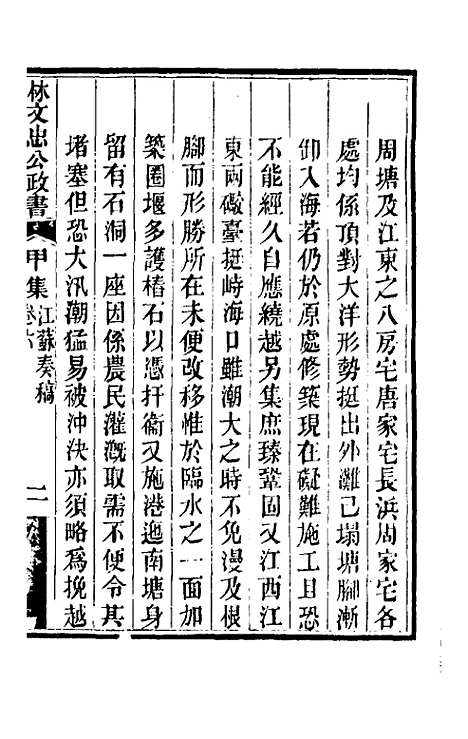 周塘及江東之八房宅唐家宅長浜周家宅各
處均係頂對大洋形勢挺出外灘已塌塘腳漸
卸入海若仍於原處修築現在礙難施工且恐
不能經久自應繞越另集庶臻鞏固又江西江
東兩礮臺挺峙海口雖潮大之時不免漫及根
腳而形勝所在未便改移惟於臨水之一面加
築圈堰多護樁石以憑扞衞又施港迤南塘身
留有石洞一座因係農民灌漑取需不便令其
堵塞但恐大汛潮猛易被沖決亦須略爲挽越
林文忠公政書
甲集
江蘇奏稿
卷六
二